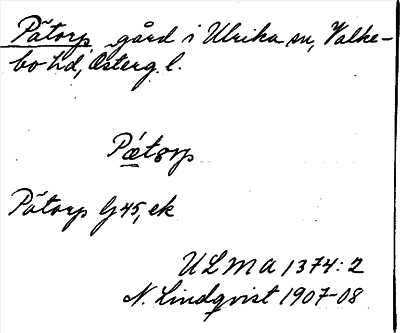 Påtorp gård i Ulrika sn, Valke-
bo hd, Österg. l.
Pǽtɷrp
Påtorp G45, ek
ULMA 1374:2
N. Lindqvist 1907-08